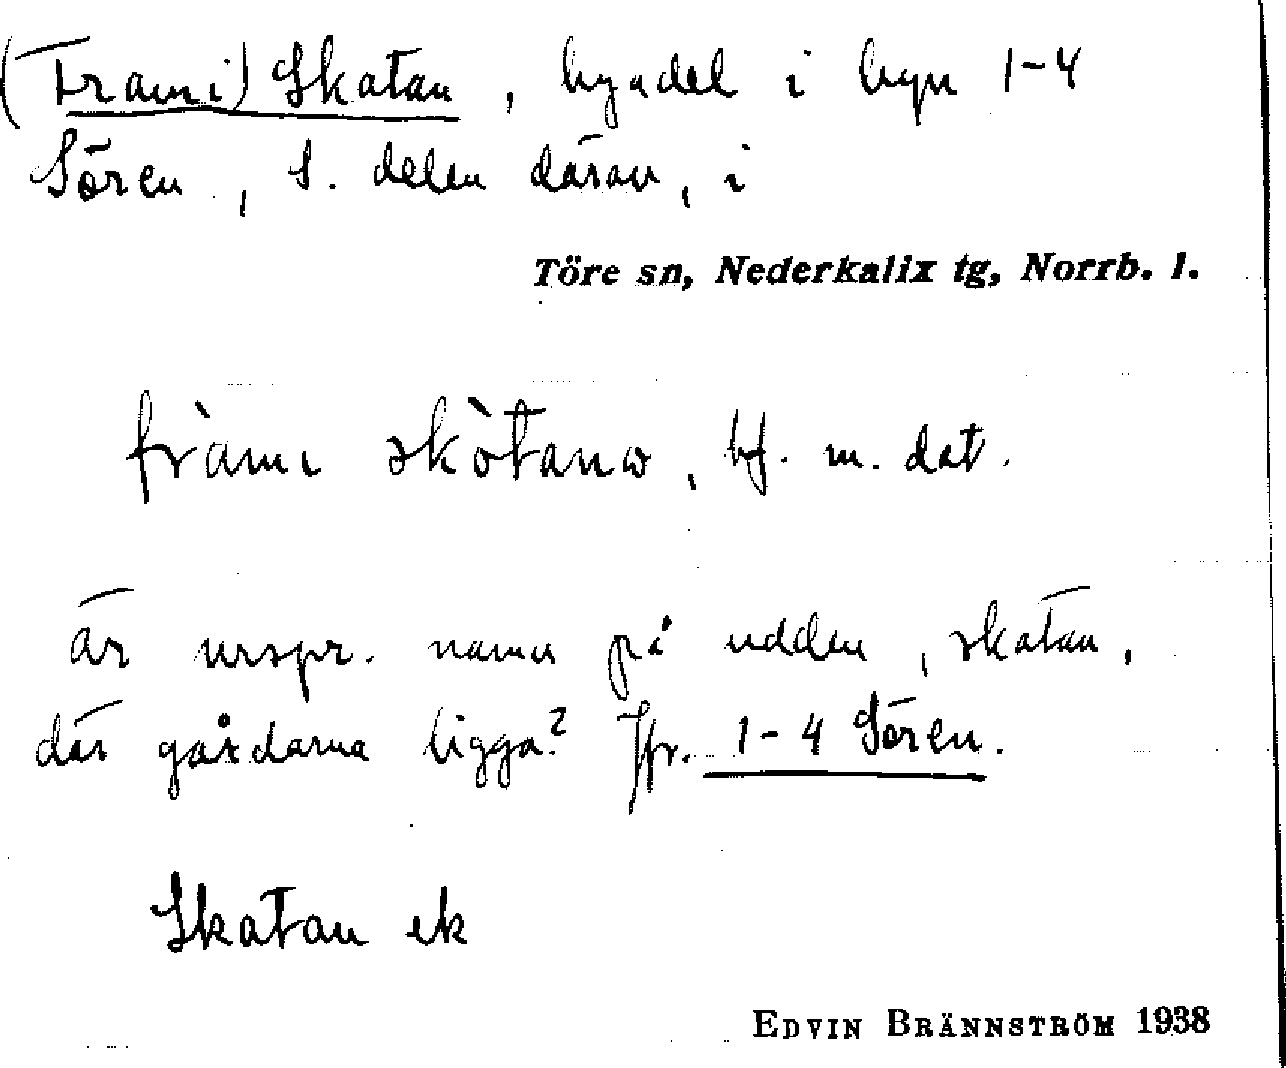 (Frami) Skatan, bydel i byn 1-4
Sören, S. delen därav, i
Töre sn, Nederkalix tg, Norrb. l.
fràmı skòtanω, bf. m. dat.
är urspr. namn på udden, skatan,
där gårdarna ligga? Jfr. 1-4 Sören.
Skatan ek
EDVIN BRÄNNSTRÖM 1938